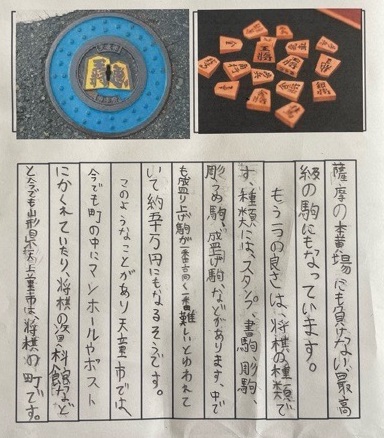 薩摩の本黄場にも負けない、最高
級の駒にもなっています。
もう一つの良さは、将棋の種類で
す。種類には、スタンプ、書駒、彫駒、
彫うめ駒、盛上げ駒、などがあります。中で
も盛り上げ駒が一番高く一番難しいといわれて
いて約五十万円にもなるそうです。
このようなことがあり天童市では、
今でも町の中にマンホールやポスト
にかくれていたり、将棋の資料館など
と今でも山形県天童市は、将棋の町です。